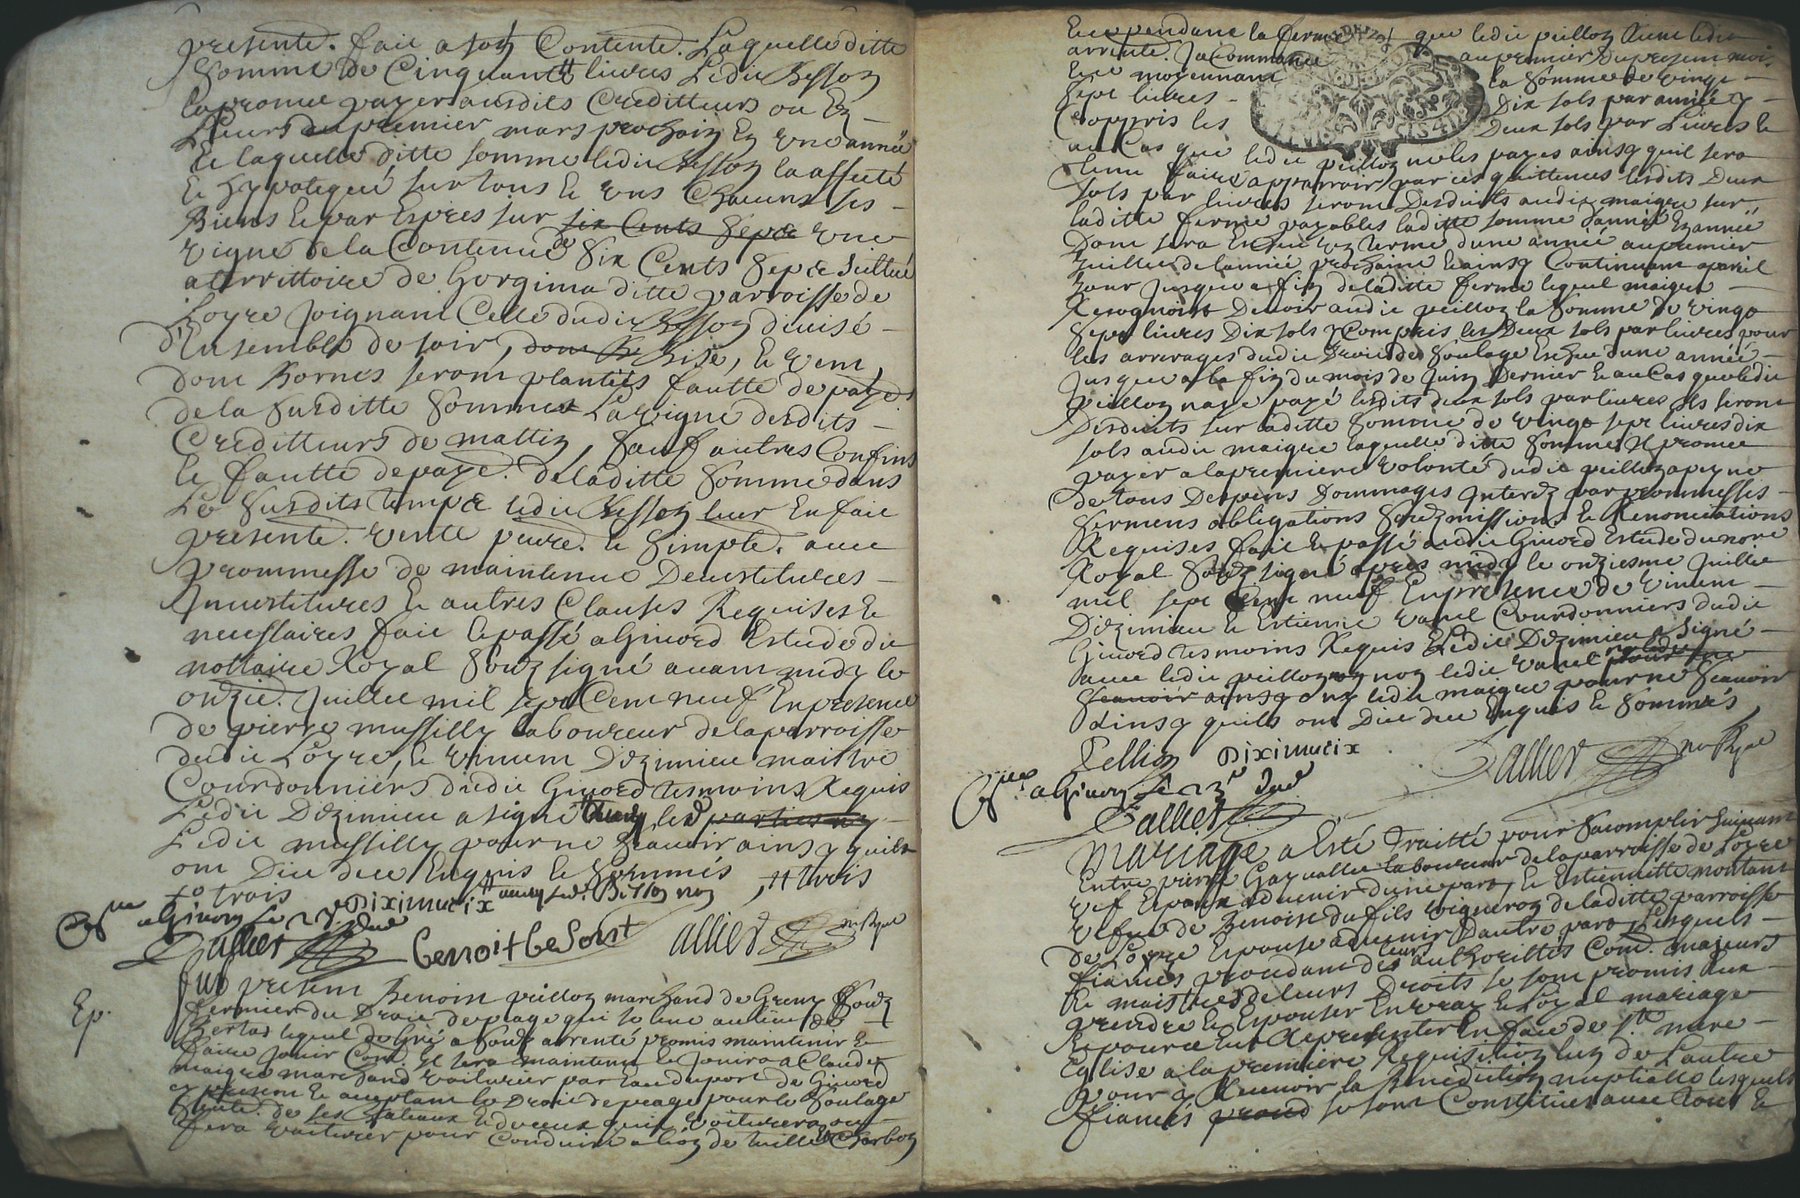 presente. faic a son Contente. Laquelle ditte
Somme de Cinquante livres Ledic Besson
la promec payer ausdits Creditteurs ou En
Leurs du premier mars prochain En une année
Ec laquelle ditte somme ledic Besson la affecté
Ec hypotequé sur tous Ec uns Chacuns ses
Biens Ec par Exprès sur six Cents Sept une
vigne de la Contenue de Six Cents Sept
a territtoire de Gorgima ditte parroisse de
Loyre Joignant Celle dudic Besson divisé
d'Ensemble de soir, Bise, Ec vent
donc Bornes seront plantés fautte de paye.
de la Susditte Somme La vigne desdits
Creditteurs de mattin, Sauf autres Confins
Ec fautte de paye. de laditte Somme dans
Le Susdits temps ledic Besson leur En faic
presente. vente pure. Ec Simple. avec
prommesse de maintenue Devestitures
Investitures Ec autres Clauses Requises Ec
necessaires faic Ec passé a Givord Estude du
nottaire Royal Souzsigné avant midy le
onzie. Juillec mil sept Cent neuf En presence
de pierre mussilly laboureur de la parroisse
dudic Loyre, Ec vincent Dezimieu maistre
Courdonniers dudic Givord tesmoins Requis
Ledic Dezimieu a signé avec led parties
Ledic mussilly pour ne Scavoir ainsy quils
onc Dic de ce Enquis Ec Sommés
trois Diximieux
a Givord le
Dallier Benoit Besont allier
Ep.
fut present Benoist peillon marchand de Souz
fermier du Droic de peage qui se leve au lieu de
lequel de Gré a Souz arrenté promis maintenir Ec
faire Jouir Com Il sera maintenu Ec Jouira a Claude
maigre marchand voiturier par Eau du port de Givord
present Ec acceptant le Droic de peage pour le Soulage
de ses Bateaux Ec de ceux quil voiturera ou
fera voiturer pour Conduire a lion de tuilles Charbon
Ec ce pendant la ferme que ledic peillon tient ledic
arrenté. Ja Commancé au premier du present mois
Ec ce moyennant la Somme de vingt
Sept livres Dix sols par année y
Compris les Deux sols par Livres Ec
au Cas que ledic peillon ne les payes ainsy quil sera
tenu faire apparroir par ces quittences lesdits Deux
sols par livres seront Desduits audic maigre sur
laditte ferme payables laditte somme d'année En année
Donc sera Escheu Un terme dune année au premier
Juillec de lannée prochaine Ec ainsy Continuant a pareil
Jour Jusques a fin de laditte ferme lequel maigre
Recognoist Devoir audic peillon la Somme de vingt
Sept livres Dix sols y Compris les Deux sols par livres pour
les arrerages dudic Droic de Soulage Escheu dune année
Jusques a la fin du mois de Juin Dernier Ec au Cas que ledic
peillon naye payé lesdits deux sols par livres Ils seront
Desduits sur laditte Somme de vingt sept livres dix
sols audic maigre laquelle ditte Somme Il promec
payer a la premiere volonté dudic peillon a peyne
de tous Despens Dommages Interez par prommesses
Sermens obligations Souzmissions Ec Renonciations
Requises faic Ec passé audic Givord Estude du nore
Royal Souzsigné apres midy le onziesme Juillec
mil sept Cent neuf En presence de vincent
Dezimieu Ec Estienne vanel Courdonniers dudic
Givord tesmoins Requis Ledic Dezimieu a signé
avec ledic peillon non ledic vanel
ledic maigre pour ne Scavoir
ainsy quils onc Dic de ce Enquis Ec Sommés
Pellion Diximieix allier no Ryal
a Givord le
Dallier
Mariage a Esté Traitté pour Sacomplir suivant
Entre pierre laboureur de la parroisse de Loyre
vef Espoux advenir dune part, Ec Estiennette montant
vefve de Benoist du fils vigneron de laditte parroisse
de Loyre Espouse advenir Dautre part Lesquels
fiancés procedant de leurs authorittes Com. majeurs
Ec maistres de leurs Droits se sont promis Eux
prendre Ec Espouser En vray Ec Loyal mariage
Ec pource Eux Representer En face de Ste mere
Eglise a la premiere Requisition lun de Lautre
pour y Recevoir la Benediction nuptialle lesquels
fiancés se sont Constitués avec tous Ec